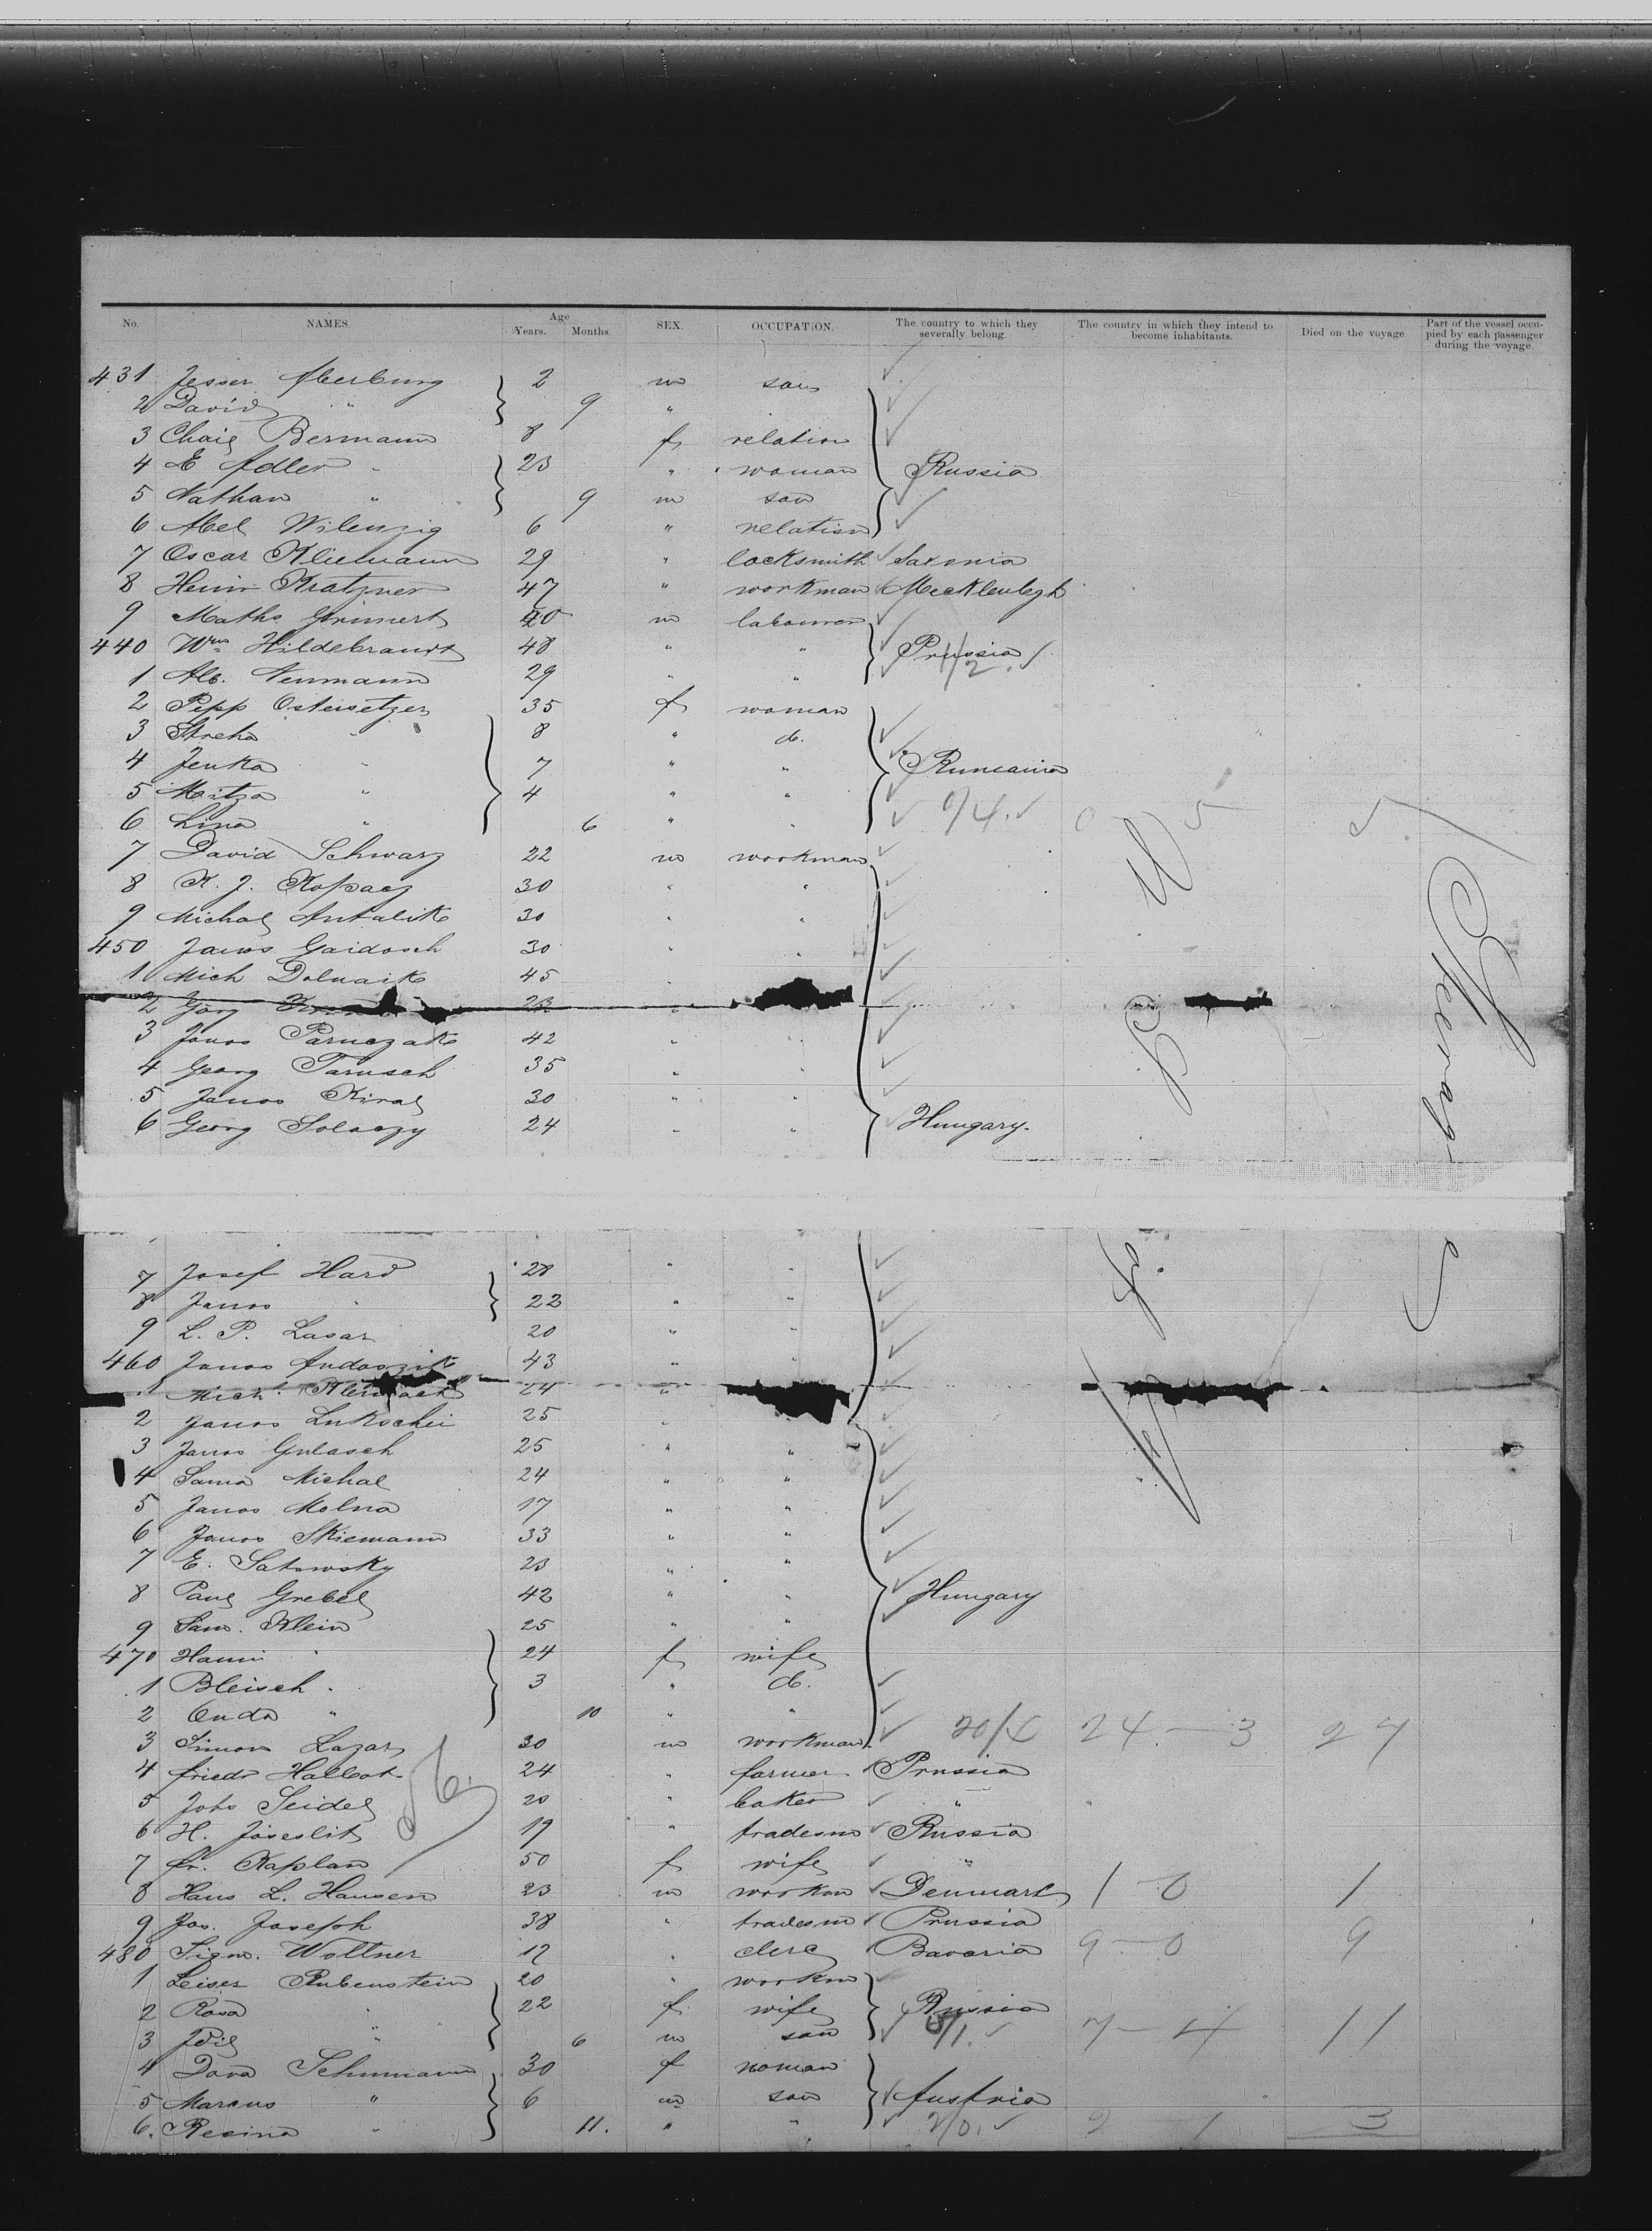 No. NAMES. Age Years. Months. SEX. OCCUPATION. The country to which they severally belong. The country in which they intend to become inhabitants. Died on the voyage Part of the vessel occupied by each passenger during the voyage.
431 Jesser 2 m son
2 David " 9 "
3 Chaie Bermann 8 f relation
4 E Adler 23 " woman Russia
5 Nathan " 9 m son
6 Abel Wilenzig 6 " relation
7 Oscar Kliemann 29 " locksmith Saxonia
8 Heinr Kratzner 47 " workman Mecklenbgh
9 Maths Grimert 40 m labourer
440 Wm Hildebrandt 48 " " Prussia
1 Alb. Neumann 29 " "
2 Pepp Ostersetzer 35 f woman
3 Streha " 8 " d.
4 Jenka " 7 " " Rumania
5 Mitza " 4 " "
6 Lina " 6 " "
7 David Schwarz 22 m workman
8 K. J. Kopacz 30 " "
9 Michal Antalik 30 " "
450 Janos Gaidosch 30 " "
1 Mich Dolnaik 45 "
2 Jörg 23 "
3 Janos Parnczak 42 " "
4 Georg Tarusch 35 " "
5 Janos Kiral 30 " "
6 Georg Solaczy 24 " " Hungary.
7 Josef Hard 28 " "
8 Janos " 22 " "
9 L. P. Lasar 20 " "
460 Janos 43 " "
1 Mich. 24 "
2 Janos Lukochei 25 "
3 Janos Gulasch 25 " "
4 Sama Michal 24 " "
5 Janos Molna 17 " "
6 Janos Skiemann 33 " "
7 E. Satowsky 23 " "
8 Paul Grebel 42 " " Hungary
9 Sam. Klein 25 " "
470 Hanni " 24 f wife
1 Bleisch " 3 " d.
2 Onda " 10 " "
3 Simon Lazar 30 m workman 20/4 24 — 3 27
4 Friedr Halbot 24 " farmer Prussia
5 Johs Seidel 20 " baker "
6 H. Joseslit 19 " tradesm Russia
7 Fr. Kaplan 50 f wife "
8 Hans L. Hansen 23 m workm Denmark 1 — 0 1
9 Jos. Joseph 38 " tradesm Prussia
480 Sigm. Wottner 17 " clerc Bavaria 9 — 0 9
1 Leiser Rubenstein 20 " workm
2 Rosa " 22 f wife Russia
3 " 6 m son 7 — 4 11
4 Dora Schumann 30 f woman
5 Marcus " 6 m son Austria
6. Recina " 11. " " 2/0. 2 1 3